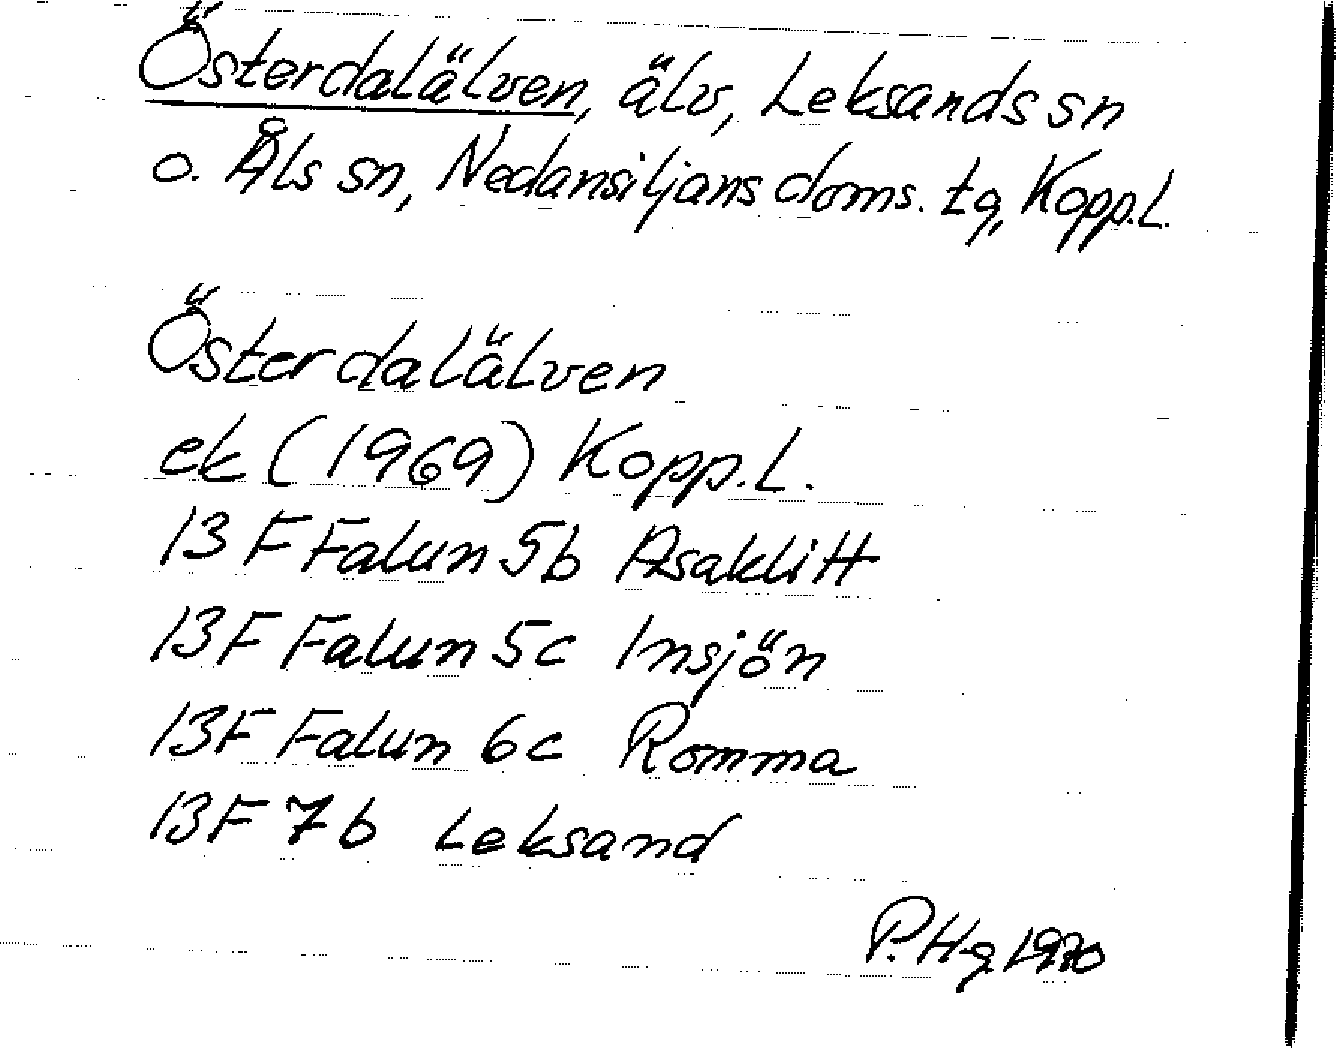 Österdalälven, älv, Leksands sn
o. Åls sn, Nedansiljans doms. tg, Kopp.l.
Österdalälven
ek (1969) Kopp.l.
13 F Falun 5b Asaklitt
13F Falun 5c Insjön
13F Falun 6c Romma
13F 7b Leksand
P. Hg 1970